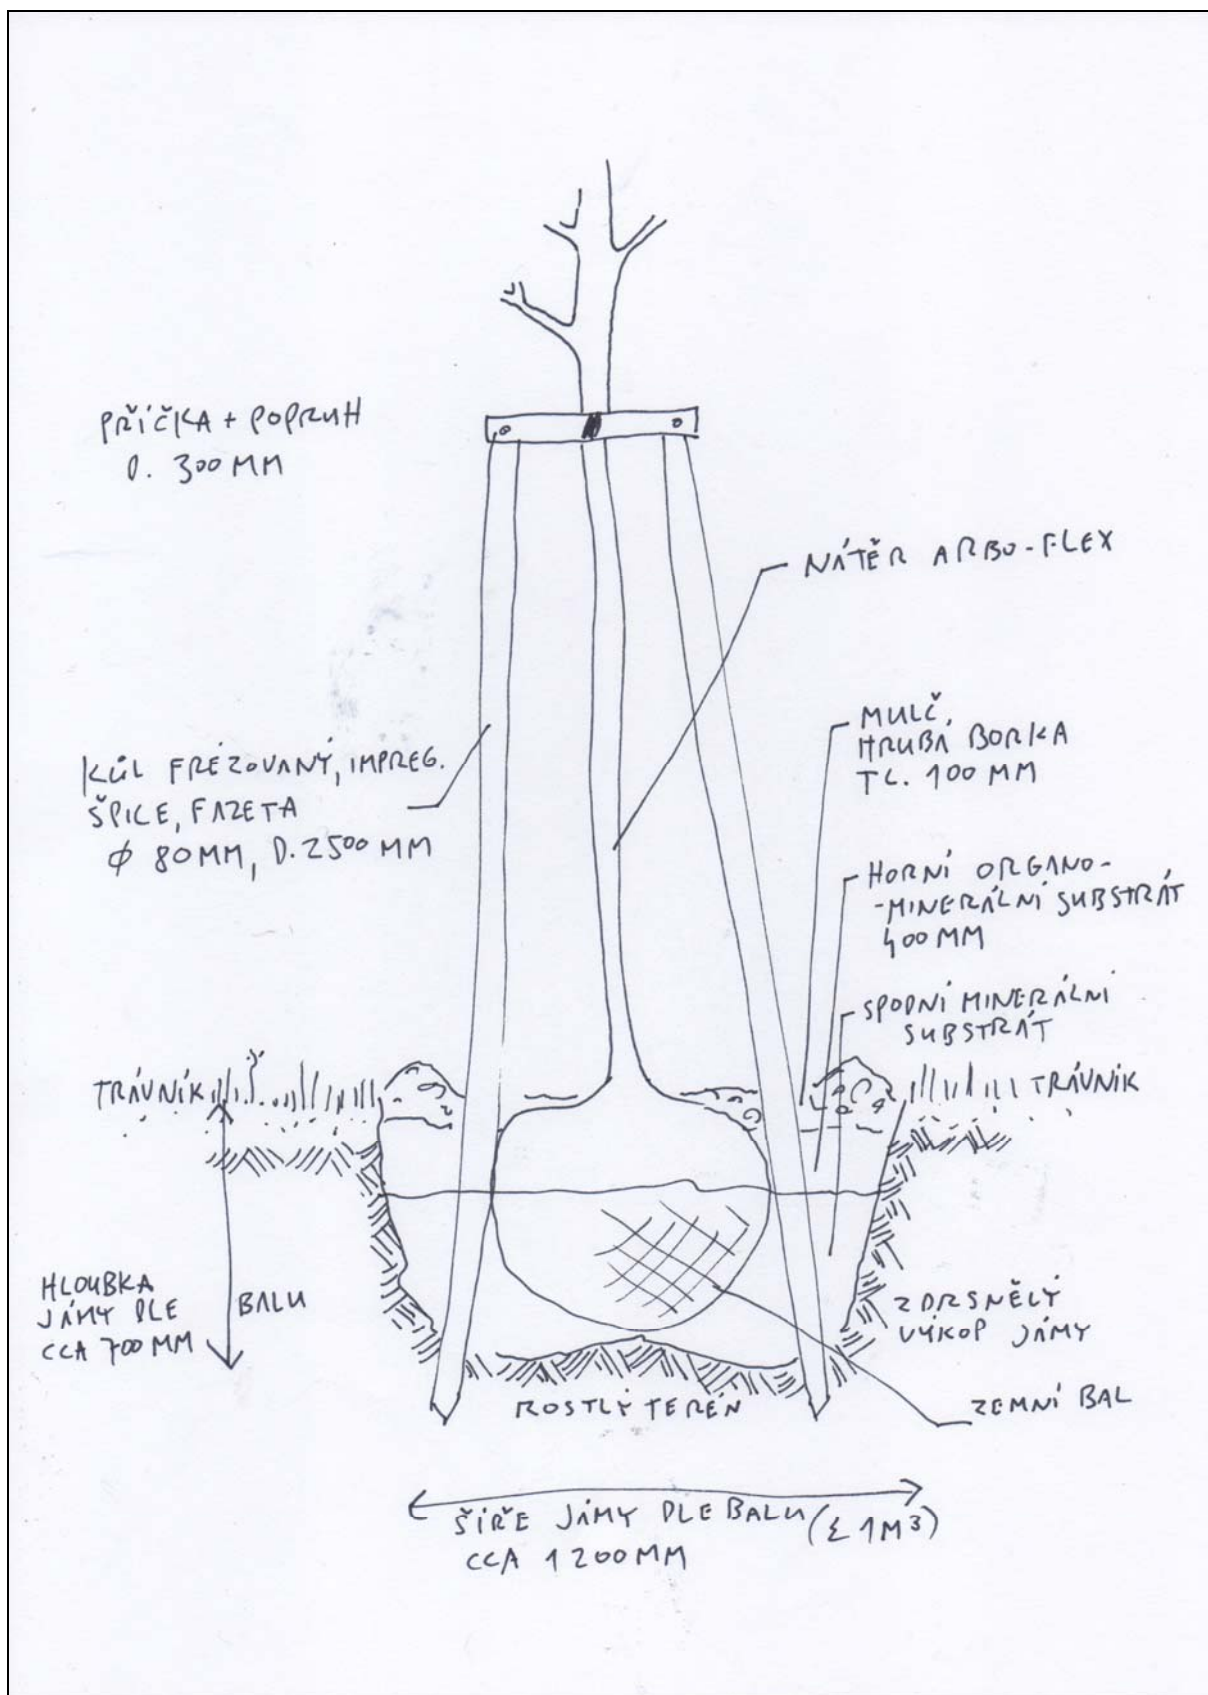 PŘÍČKA + POPRUH
D. 300 MM
NÁTĚR ARBO-FLEX
KŮL FRÉZOVANÝ, IMPREG.
ŠPICE, FAZETA
ϕ 80 MM, D. 2500 MM
MULČ,
HRUBÁ BORKA
TL. 100 MM
HORNÍ ORGANO-
-MINERÁLNÍ SUBSTRÁT
400 MM
SPODNÍ MINERÁLNÍ
SUBSTRÁT
TRÁVNÍK
TRÁVNÍK
HLOUBKA
JÁMY DLE BALU
CCA 700 MM
ZDRSNĚLÝ
VÝKOP JÁMY
ROSTLÝ TERÉN
ZEMNÍ BAL
ŠÍŘE JÁMY DLE BALU (Σ 1M³)
CCA 1200 MM